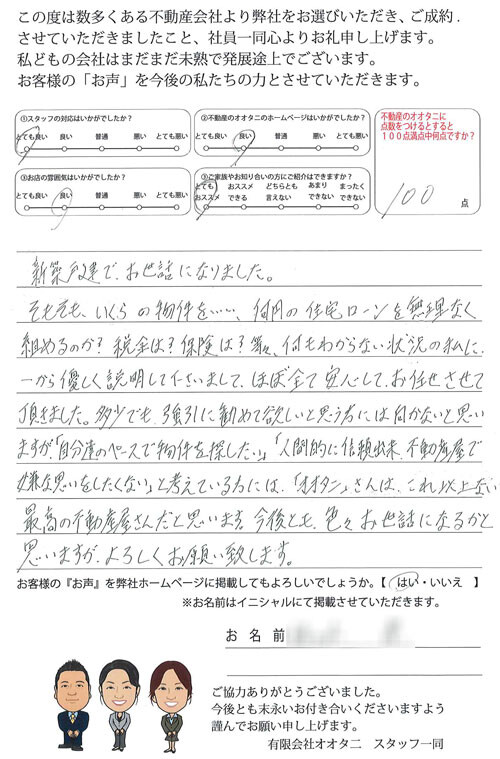 この度は数多くある不動産会社より弊社をお選びいただき、ご成約.
させていただきましたこと、社員一同心よりお礼申し上げます。
私どもの会社はまだまだ未熟で発展途上でございます。
お客様の「お声」を今後の私たちの力とさせていただきます。
①スタッフの対応はいかがでしたか?
とても良い 良い 普通 悪い とても悪い
②不動産のオオタニのホームページはいかがでしたか?
とても良い 良い 普通 悪い とても悪い
③お店の雰囲気はいかがでしたか?
とても良い 良い 普通 悪い とても悪い
③ご家族やお知り合いの方にご紹介はできますか?
とても オススメ どちらとも あまり まったく
オススメ できる 言えない できない できない
不動産のオオタニに
点数をつけるとすると
100点満点中何点ですか?
100 点
新築戸建で、お世話になりました。
そもそも、いくらの物件を……、何円の住宅ローンを無理なく
組めるのか?税金は?保険は?等々、何もわからない状況の私に、
一から優しく説明して下さいまして、ほぼ全て安心して、お任せさせて
頂きました。多少でも、強引に勧めて欲しいと思う方には向かないと思い
ますが、「自分達のペースで物件を探したい。」「人間的に信頼出来、不動産屋で
嫌な思いをしたくない」と考えている方には、「オオタニ」さんは、これ以上ない
最高の不動産屋さんだと思います。今後とも、色々お世話になるかと
思いますが、よろしくお願い致します。
お客様の『お声』を弊社ホームページに掲載してもよろしいでしょうか。【 はい・いいえ 】
※お名前はイニシャルにて掲載させていただきます。
お 名 前
ご協力ありがとうございました。
今後とも末永いお付き合いくださいますよう
謹んでお願い申し上げます。
有限会社オオタニ スタッフ一同